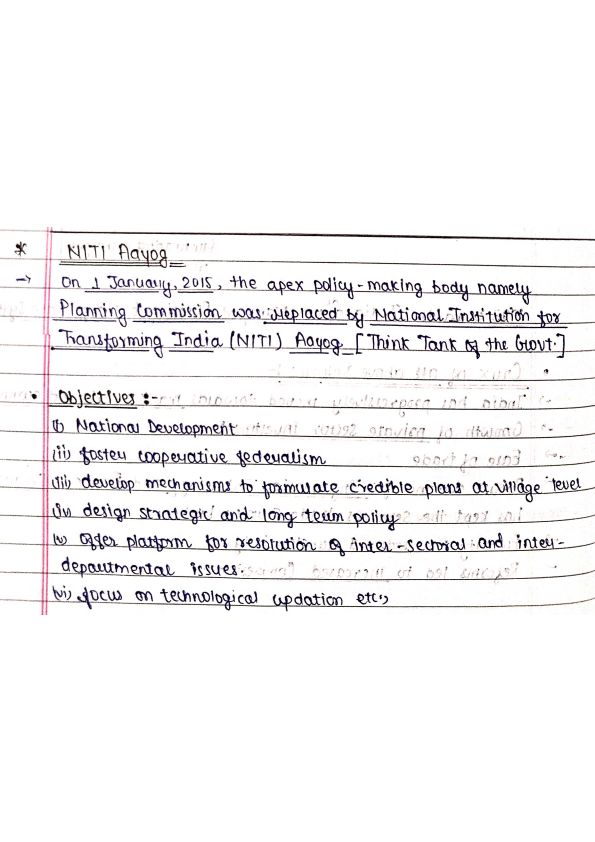 * NITI Aayog
→ On 1 January, 2015, the apex policy-making body namely
Planning Commission was replaced by National Institution for
Transforming India (NITI) Aayog [Think Tank of the Govt.]
• Objectives :-
(i) National Development
(ii) foster cooperative federalism
(iii) develop mechanisms to formulate credible plans at village level
(iv) design strategic and long term policy
(v) offer platform for resolution of inter-sectorial and inter-
departmental issues.
(vi) focus on technological updation etc.,